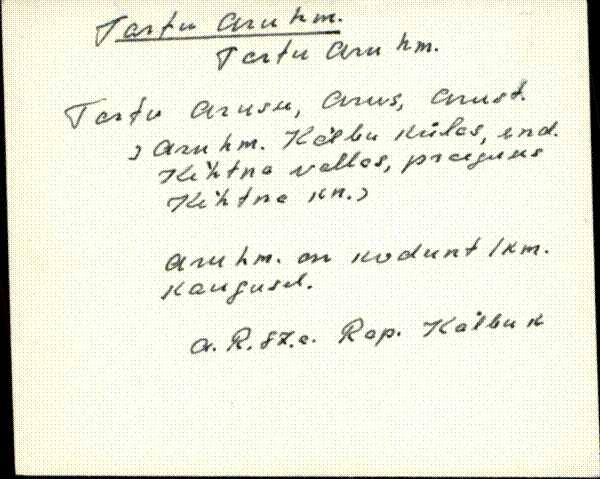 Tartu Aru hm.
Tartu Aru hm.
Tartu Arusu, Arus, Arust.
) Aru hm. Kälbu külas, end.
Kehtna vallas, praeguses
Kehtna kn.)
Aru hm. on kodunt 1 km.
kaugusel.
A. R. 87.a. Rap. Kälbu k